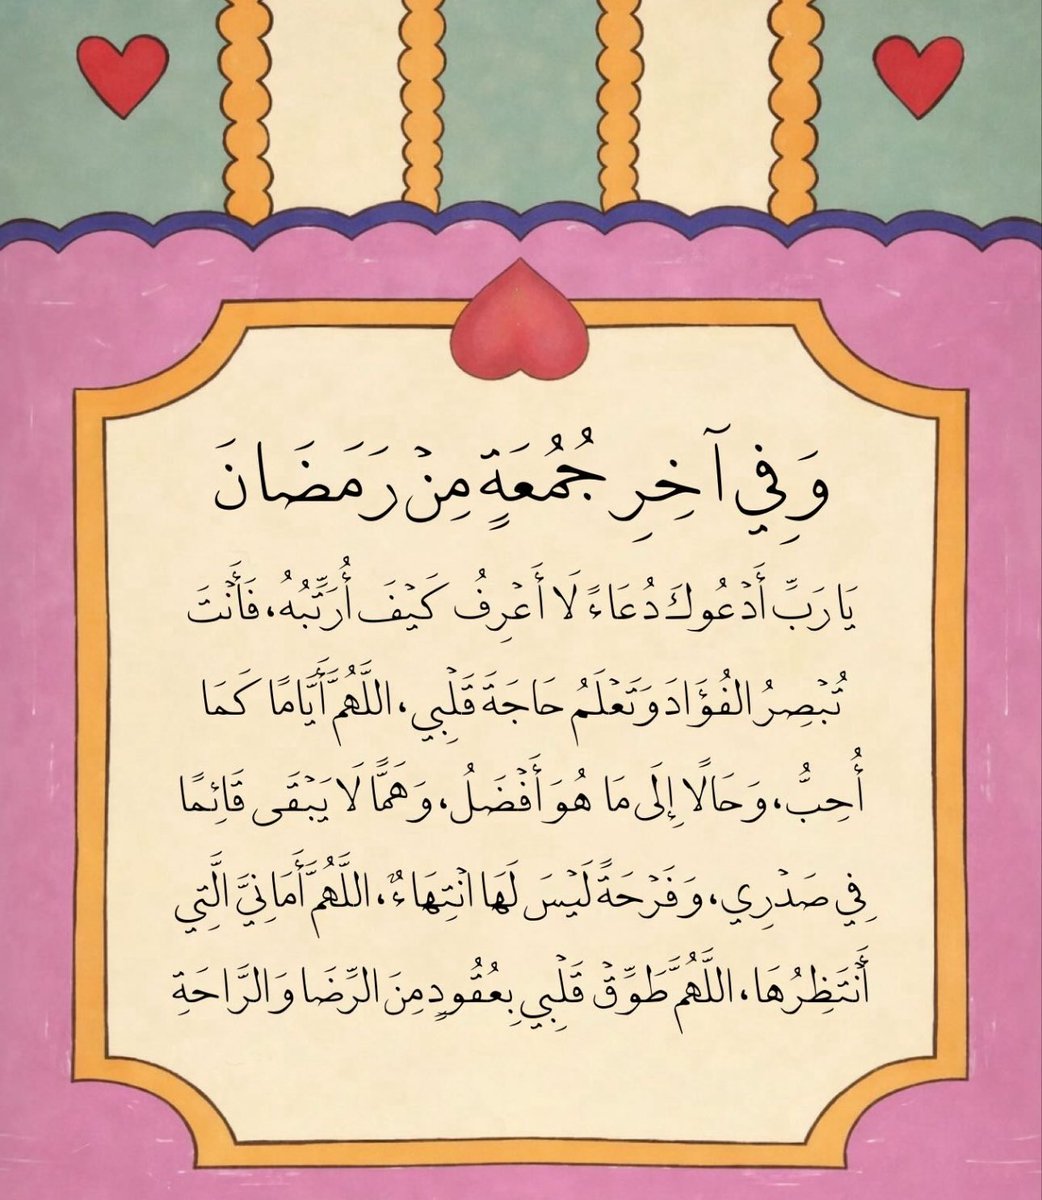 وَفِي آخِرِ جُمُعَةٍ مِنْ رَمَضَانَ
يَا رَبِّ أَدْعُوكَ دُعَاءً لَا أَعْرِفُ كَيْفَ أُرَتِّبُهُ، فَأَنْتَ
تُبْصِرُ الفُؤَادَ وَتَعْلَمُ حَاجَةَ قَلْبِي، اللَّهُمَّ أَيَّامًا كَمَا
أُحِبُّ، وَحَالًا إِلَى مَا هُوَ أَفْضَلُ، وَهَمًّا لَا يَبْقَى قَائِمًا
فِي صَدْرِي، وَفَرْحَةً لَيْسَ لَهَا انْتِهَاءٌ، اللَّهُمَّ أَمَانِيَّ الَّتِي
أَنْتَظِرُهَا، اللَّهُمَّ طَوِّقْ قَلْبِي بِعُقُودٍ مِنَ الرِّضَا وَالرَّاحَةِ